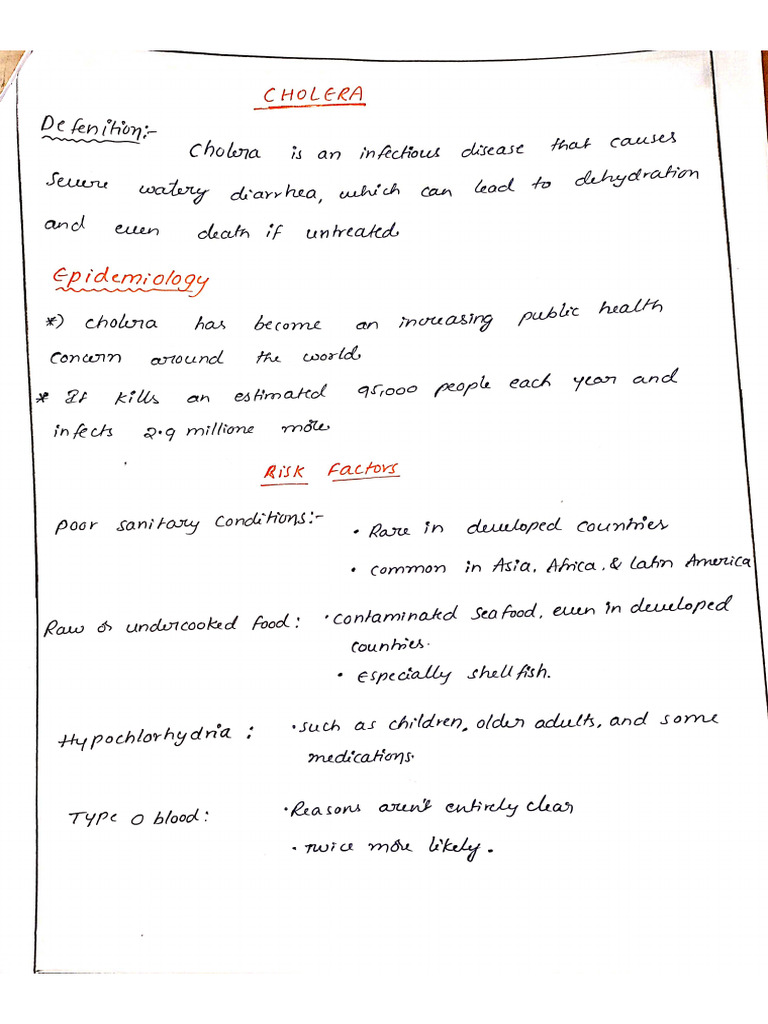 CHOLERA
Defenition:-
Cholera is an infectious disease that causes
severe watery diarrhea, which can lead to dehydration
and even death if untreated.
Epidemiology
*) cholera has become an increasing public health
concern around the world.
* It kills an estimated 95,000 people each year and
infects 2.9 millione more.
Risk Factors
Poor sanitary conditions:- • Rare in developed countries
• common in Asia, Africa, & Latin America
Raw or undercooked food: • contaminated seafood, even in developed
countries.
• Especially shellfish.
Hypochlorhydria: • such as children, older adults, and some
medications.
Type O blood: • Reasons aren't entirely clear
• Twice more likely.